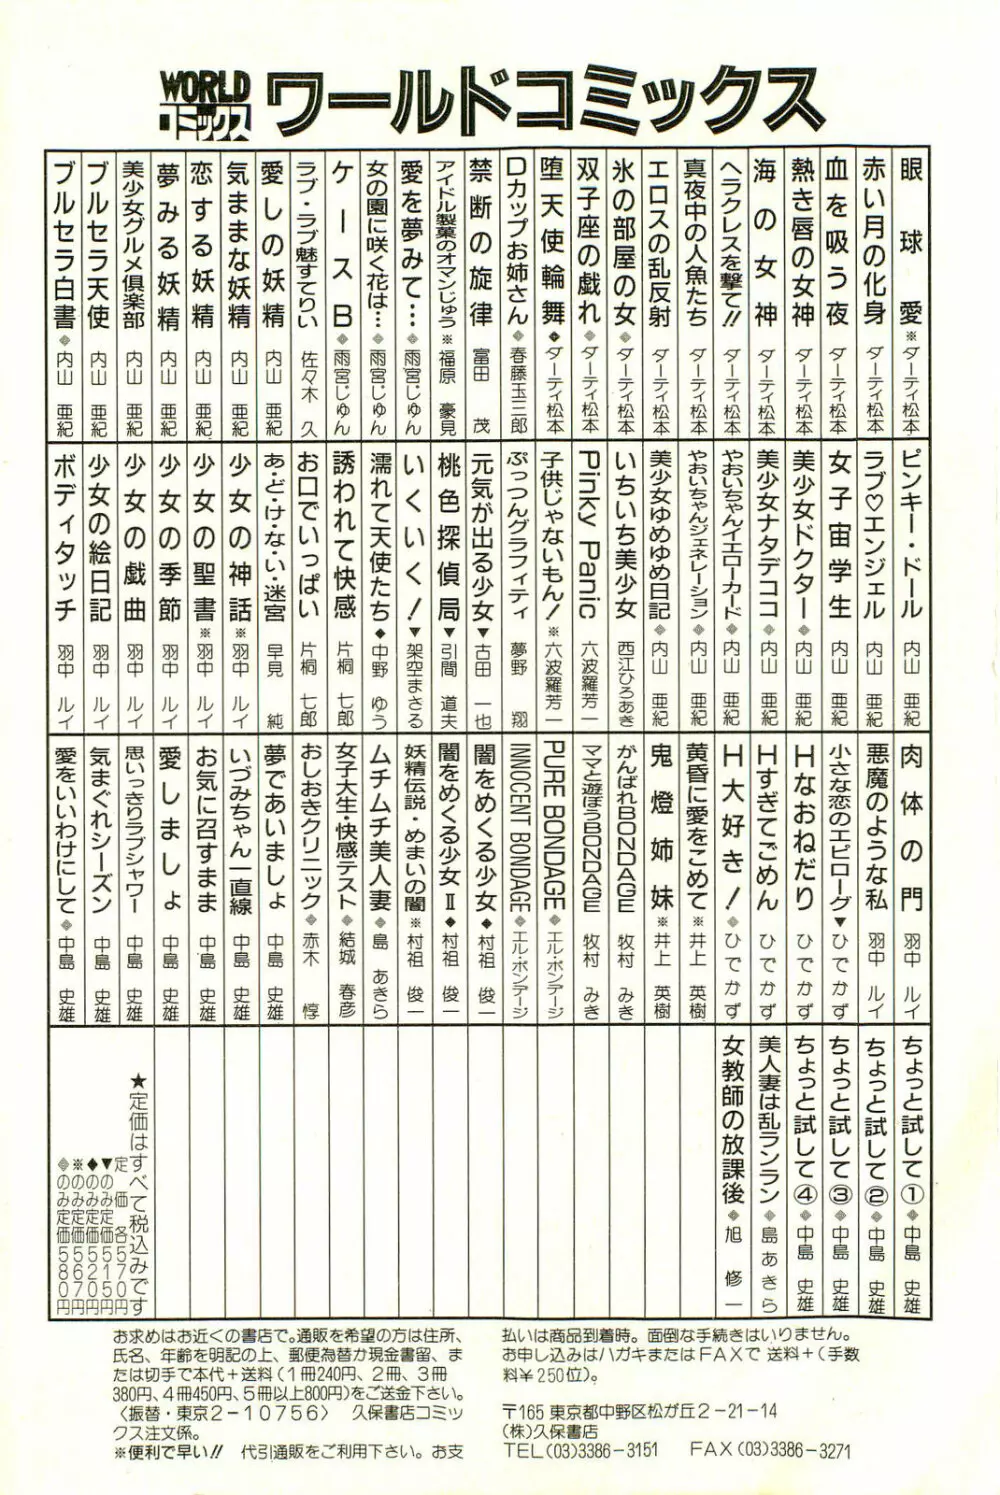 WORLD
コミックス
ワールドコミックス
眼球愛※ダーティ松本
赤い月の化身 ダーティ松本
血を吸う夜 ダーティ松本
熱き唇の女神 ダーティ松本
海の女神 ダーティ松本
ヘラクレスを撃て!! ダーティ松本
真夜中の人魚たち ダーティ松本
エロスの乱反射 ダーティ松本
氷の部屋の女◈ダーティ松本
双子座の戯れ◈ダーティ松本
堕天使輪舞◆ダーティ松本
Dカップお姉さん◈春藤玉三郎
禁断の旋律 富田 茂
アイドル製菓のオマンじゅう※福原 豪見
愛を夢みて…◈雨宮じゅん
女の園に咲く花は…◈雨宮じゅん
ケースB◈雨宮じゅん
ラブ・ラブ魅すてりい 佐々木 久
愛しの妖精 内山 亜紀
気ままな妖精 内山 亜紀
恋する妖精 内山 亜紀
夢みる妖精 内山 亜紀
美少女グルメ倶楽部 内山 亜紀
ブルセラ天使 内山 亜紀
ブルセラ白書◈内山 亜紀
ピンキー・ドール 内山 亜紀
ラブ♡エンジェル 内山 亜紀
女子宙学生 内山 亜紀
美少女ドクター◈内山 亜紀
美少女ナタデココ◈内山 亜紀
やおいちゃんイエローカード◈内山 亜紀
やおいちゃんジェネレーション◈内山 亜紀
美少女ゆめゆめ日記◈内山 亜紀
いちいち美少女 西江ひろあき
Pinky Panic 六波羅芳一
子供じゃないもん!※六波羅芳一
ぷっつんグラフィティ 夢野 翔
元気が出る少女▼古田 一也
桃色探偵局▼引間 道夫
いくいく!▼架空まさる
濡れて天使たち◆中野 ゆう
誘われて快感 片桐 七郎
お口でいっぱい 片桐 七郎
あ・ど・け・な・い・迷宮 早見 純
少女の神話※羽中 ルイ
少女の聖書※羽中 ルイ
少女の季節 羽中 ルイ
少女の戯曲 羽中 ルイ
少女の絵日記 羽中 ルイ
ボディタッチ 羽中 ルイ
肉体の門 羽中 ルイ
悪魔のような私 羽中 ルイ
小さな恋のエピローグ▼ひでかず
Hなおねだり ひでかず
Hすぎてごめん ひでかず
H大好き!◈ひでかず
黄昏に愛をこめて※井上 英樹
鬼燈姉妹※井上 英樹
がんばれBONDAGE 牧村 みき
ママと遊ぼうBONDAGE 牧村 みき
PURE BONDAGE◈エル・ボンデージ
INNOCENT BONDAGE◈エル・ボンデージ
闇をめくる少女◆村祖 俊一
闇をめくる少女Ⅱ◆村祖 俊一
妖精伝説・めまいの闇※村祖 俊一
ムチムチ美人妻◈島 あきら
女子大生・快感テスト◈結城 春彦
おしおきクリニック◈赤木 惇
夢であいましょ 中島 史雄
いづみちゃん一直線 中島 史雄
お気に召すまま 中島 史雄
愛しましょ 中島 史雄
思いっきりラブシャワー 中島 史雄
気まぐれシーズン 中島 史雄
愛をいいわけにして◈中島 史雄
ちょっと試して①◈中島 史雄
ちょっと試して②◈中島 史雄
ちょっと試して③◈中島 史雄
ちょっと試して④◈中島 史雄
美人妻は乱ランラン◈島 あきら
女教師の放課後◈旭 修一
★定価はすべて税込みです
定価 各570円
▼のみ定価515円
◆のみ定価520円
※のみ定価560円
◈のみ定価580円
お求めはお近くの書店で。通販を希望の方は住所、
氏名、年齢を明記の上、郵便為替か現金書留、ま
たは切手で本代+送料(1冊240円、2冊、3冊
380円、4冊450円、5冊以上800円)をご送金下さい。
〈振替・東京2-10756〉 久保書店コミッ
クス注文係。
※便利で早い!! 代引通販をご利用下さい。お支
払いは商品到着時。面倒な手続きはいりません。
お申し込みはハガキまたはFAXで 送料+(手数
料¥250位)。
〒165 東京都中野区松が丘2-21-14
(株)久保書店
TEL(03)3386-3151 FAX(03)3386-3271